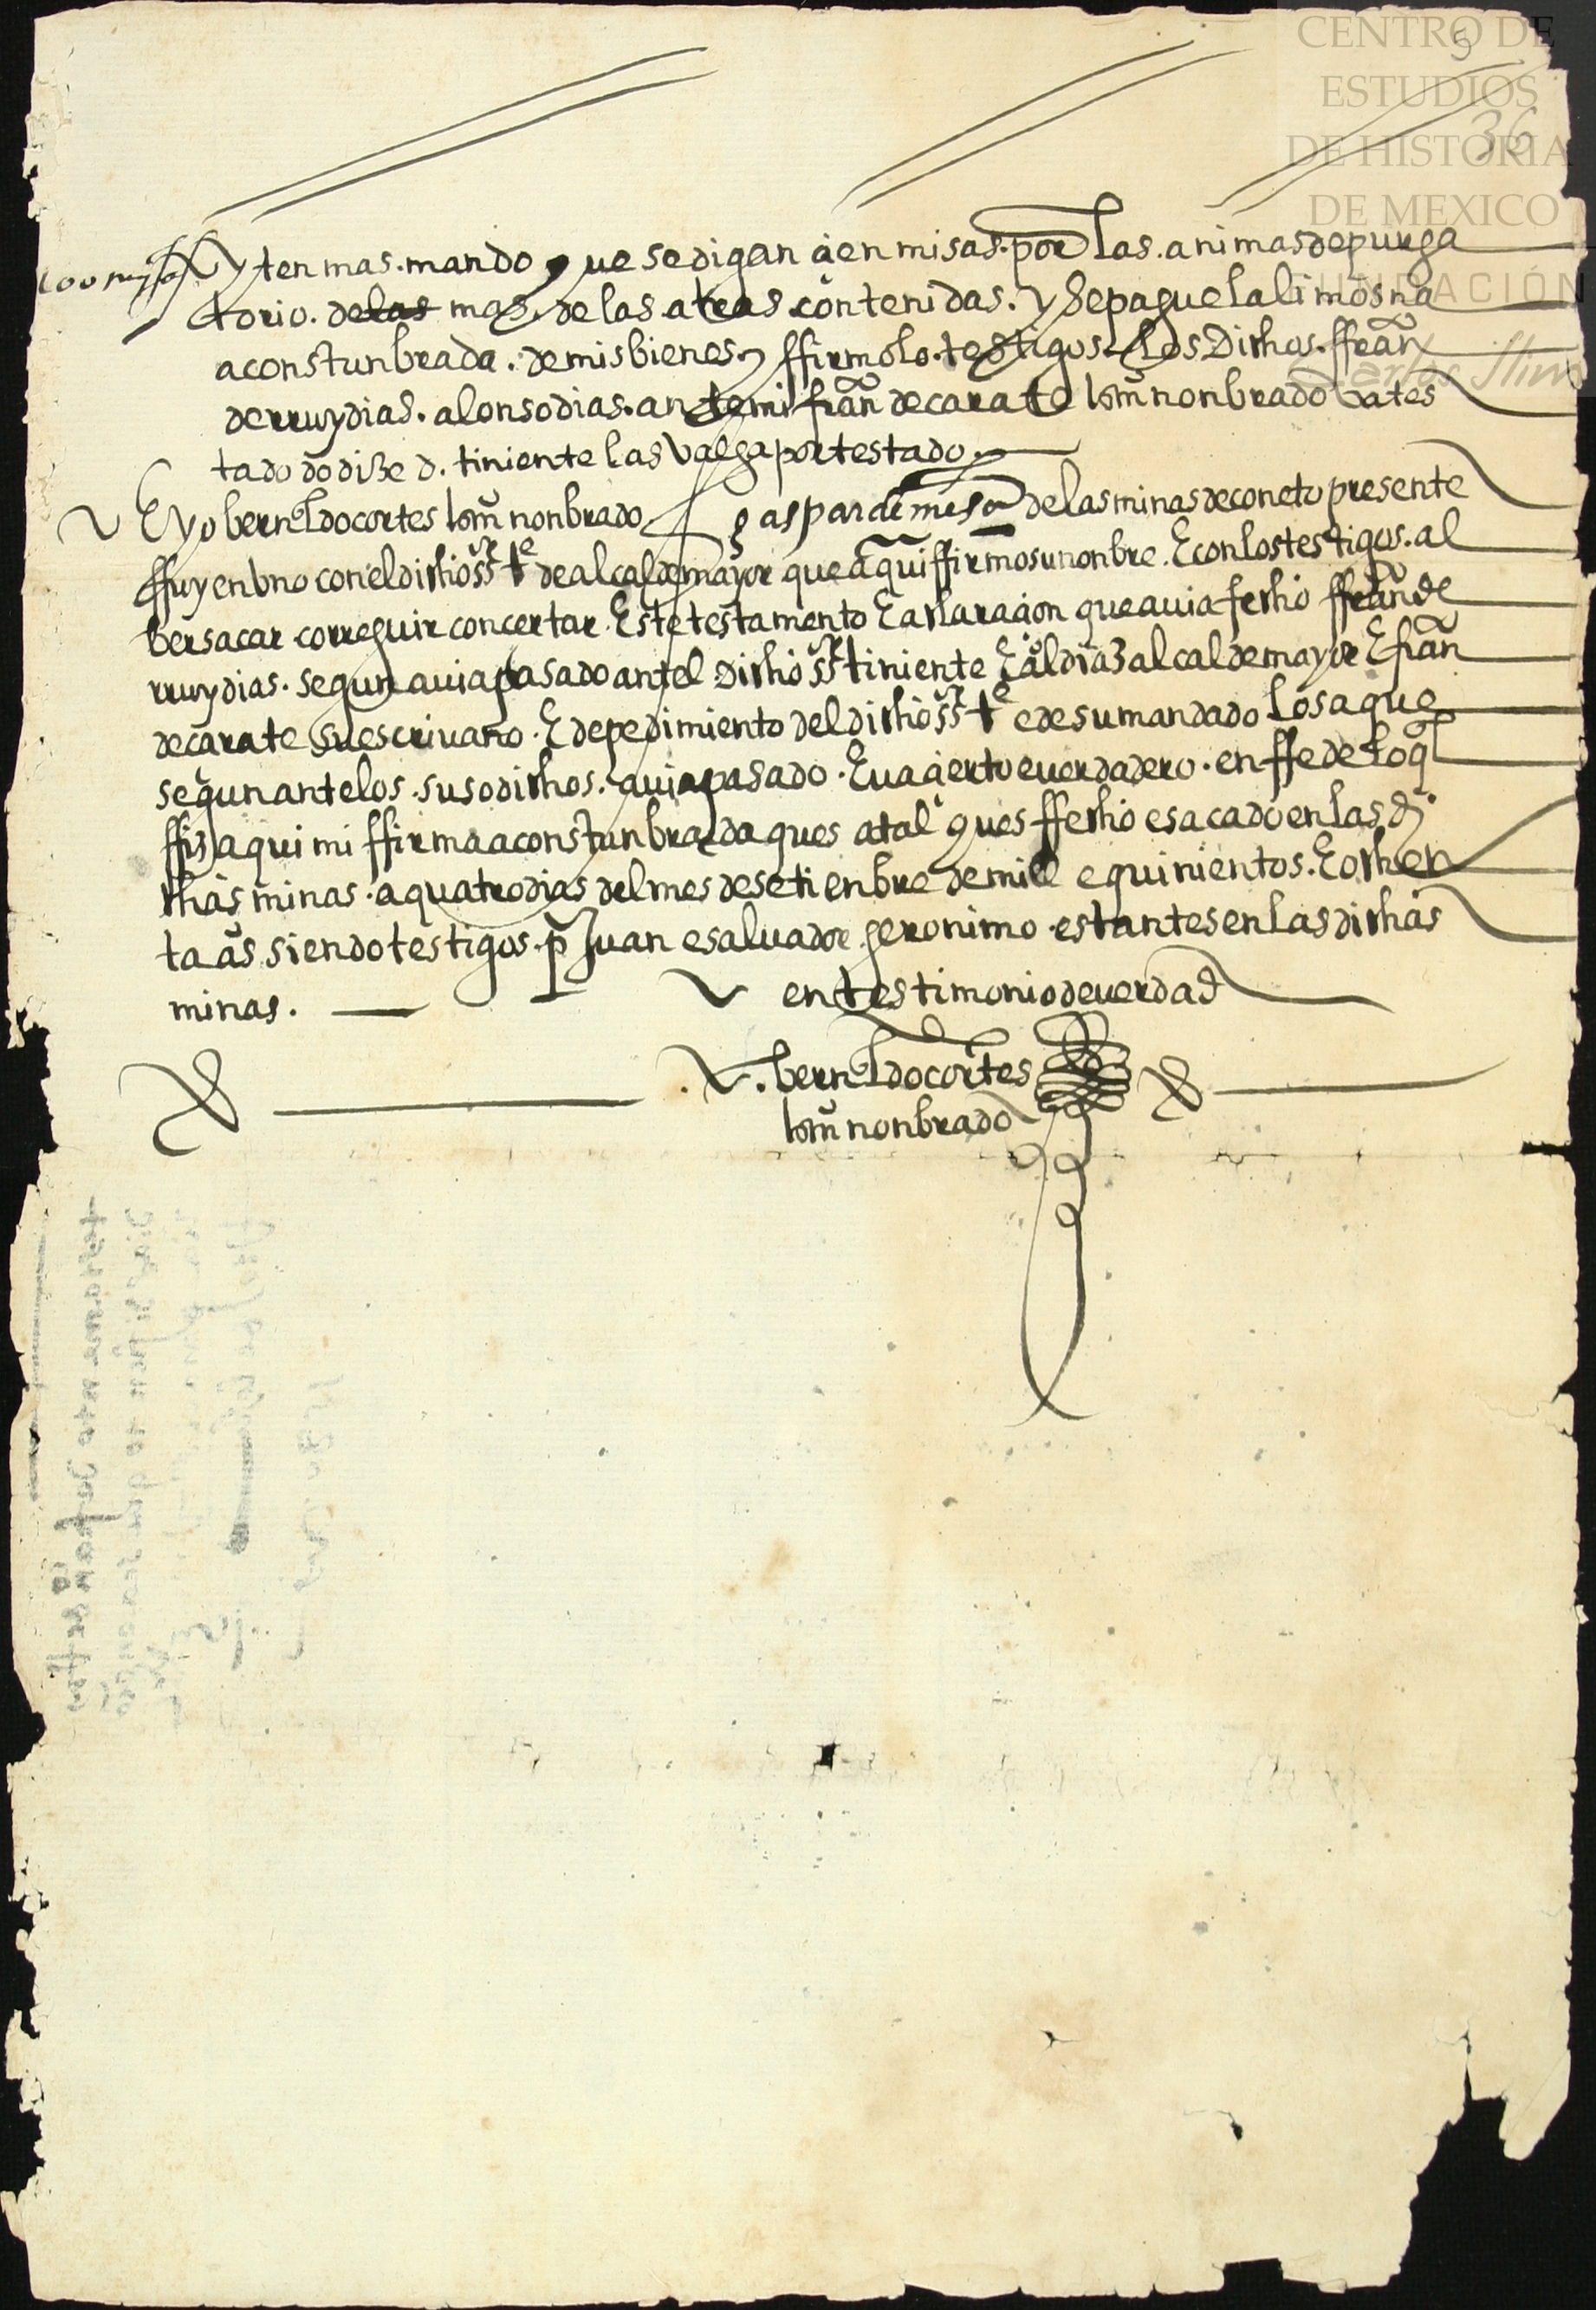 CENTRO DE
ESTUDIOS
DE HISTORIA
DE MEXICO
FUNDACIÓN
Carlos Slim
5
36
100 misas
yten mas. mando que se digan çien misas. por las. animas de purga
torio. de las mas. de las atras contenidas. y se pague la limosna
aconstunbrada. de mis bienes y ffirmolo. testigos. los dichos. ffrañ
de rruy dias. alonso dias. ante mi frañ de carate nonbrado va tes
tado do dize d. tiniente las valga por testado.
E yo bernldo cortes nonbrado gaspar de mesa de las minas de coneto presente
ffuy en vno con el dicho sr te de alcalde mayor que aqui ffirmo su nonbre. E con los testigos. al
ber sacar correguir concertar. Este testamento E aclaraçion que auia fecho ffrañ de
rruy dias. segun auia pasado antel dicho sr tiniente E alcalde mayor E frañ
de carate su escriuano. E de pedimiento del dicho sr te e de su mandado lo saque
segun ante los. susodichos. auia pasado. E va çierto e verdadero. en ffe de lo ql
ffiz aqui mi ffirma aconstunbrada ques atal ques ffecho e sacado en las di
chas minas. a quatro dias del mes de setienbre de mill e quinientos. E ochen
ta as siendo testigos. po Juan e saluador geronimo. estantes en las dichas
minas.
en testimonio de verdad
bernldo cortes
nonbrado